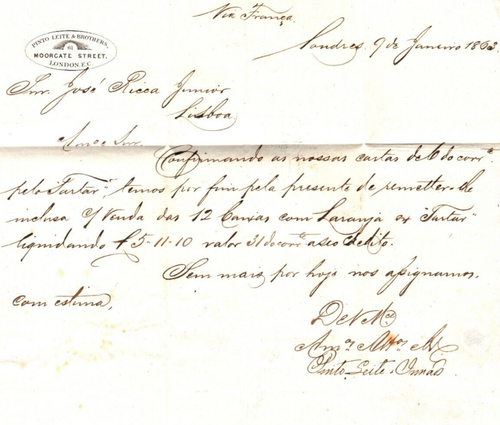 Via França
PINTO LEITE & BROTHERS,
MOORGATE STREET,
LONDON E.C.
Londres, 9 de Janeiro 1863.
Snr. José Ricca Junior
Lisboa
Amo. e Snr.
Confirmando as nossas cartas de 6 do corre.
pelo "Tartar", temos por fim pela presente de remetter-lhe
inclusa c/ Venda das 12 Caixas com Laranja ex "Tartar"
liquidando £ 5-11-10 valor 31 do corre. a seo credito.
Sem mais por hoje nos assignamos,
com estima,
De VMce
Amos. Attos.
Pinto Leite e Irmãos